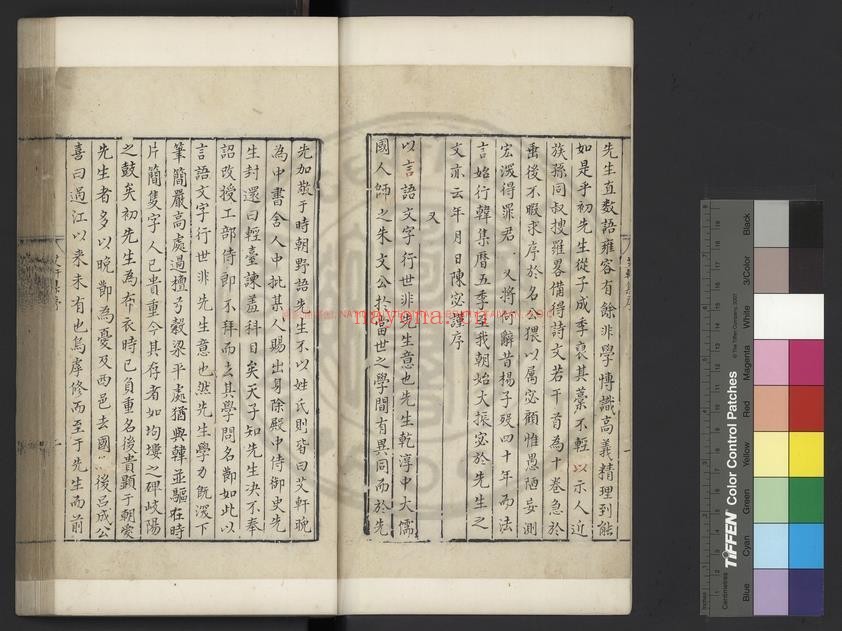 先生直数語雍容有餘非學博識高義精理到能
如是乎初先生從子成季裒其藁不輕以示人近
族孫同叔搜羅畧備得詩文若干首為十卷急於
垂後不暇求序於名公猥以属宓顧惟愚陋妄測
宏深得罪君 又將何辭昔楊子歿四十年而法
言始行韓集曆五季至我朝始大振宓於先生之
文亦云年月日陳宓謹序
又
以言語文字行世非先生意也先生乾淳中大儒
國人師之朱文公於當世之學間有異同而於先
先加敬于時朝野語先生不以姓氏則皆曰艾軒晚
為中書舍人中批某人賜出身除殿中侍御史先
生封還曰輕臺諫羞科目矣天子知先生决不奉
詔改授工部侍郎不拜而去其學問名節如此以
言語文字行世非先生意也然先生學力既深下
筆簡嚴高處逼檀弓穀梁平處猶與韓並驅在時
片簡隻字人已貴重今其存者如岣嶁之碑岐陽
之鼓矣初先生為布衣時已負重名後貴顯于朝愛
先生者多以晚節為憂及西邑去國 後呂成公
喜曰過江以來未有也烏虖修而至于先生而前
nayona.cn
TIFFEN Color Control Patches
© The Tiffen Company, 2007
Centimetres
Inches
Blue
Cyan
Green
Yellow
Red
Magenta
White
3/Color
Black